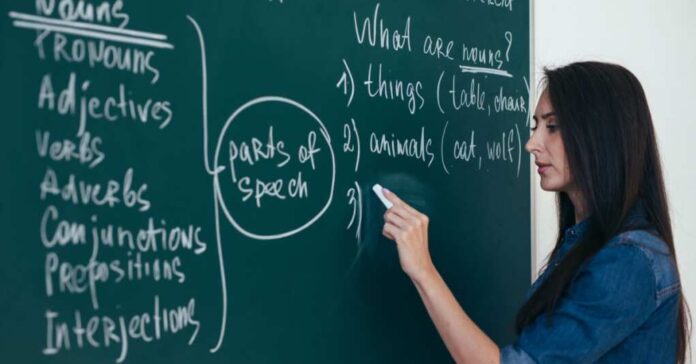 Nouns
Pronouns
Adjectives
Verbs
Adverbs
Conjunctions
Prepositions
Interjections
parts of
speech
What are nouns?
1) things (table, chair)
2) animals (cat, wolf)
3)